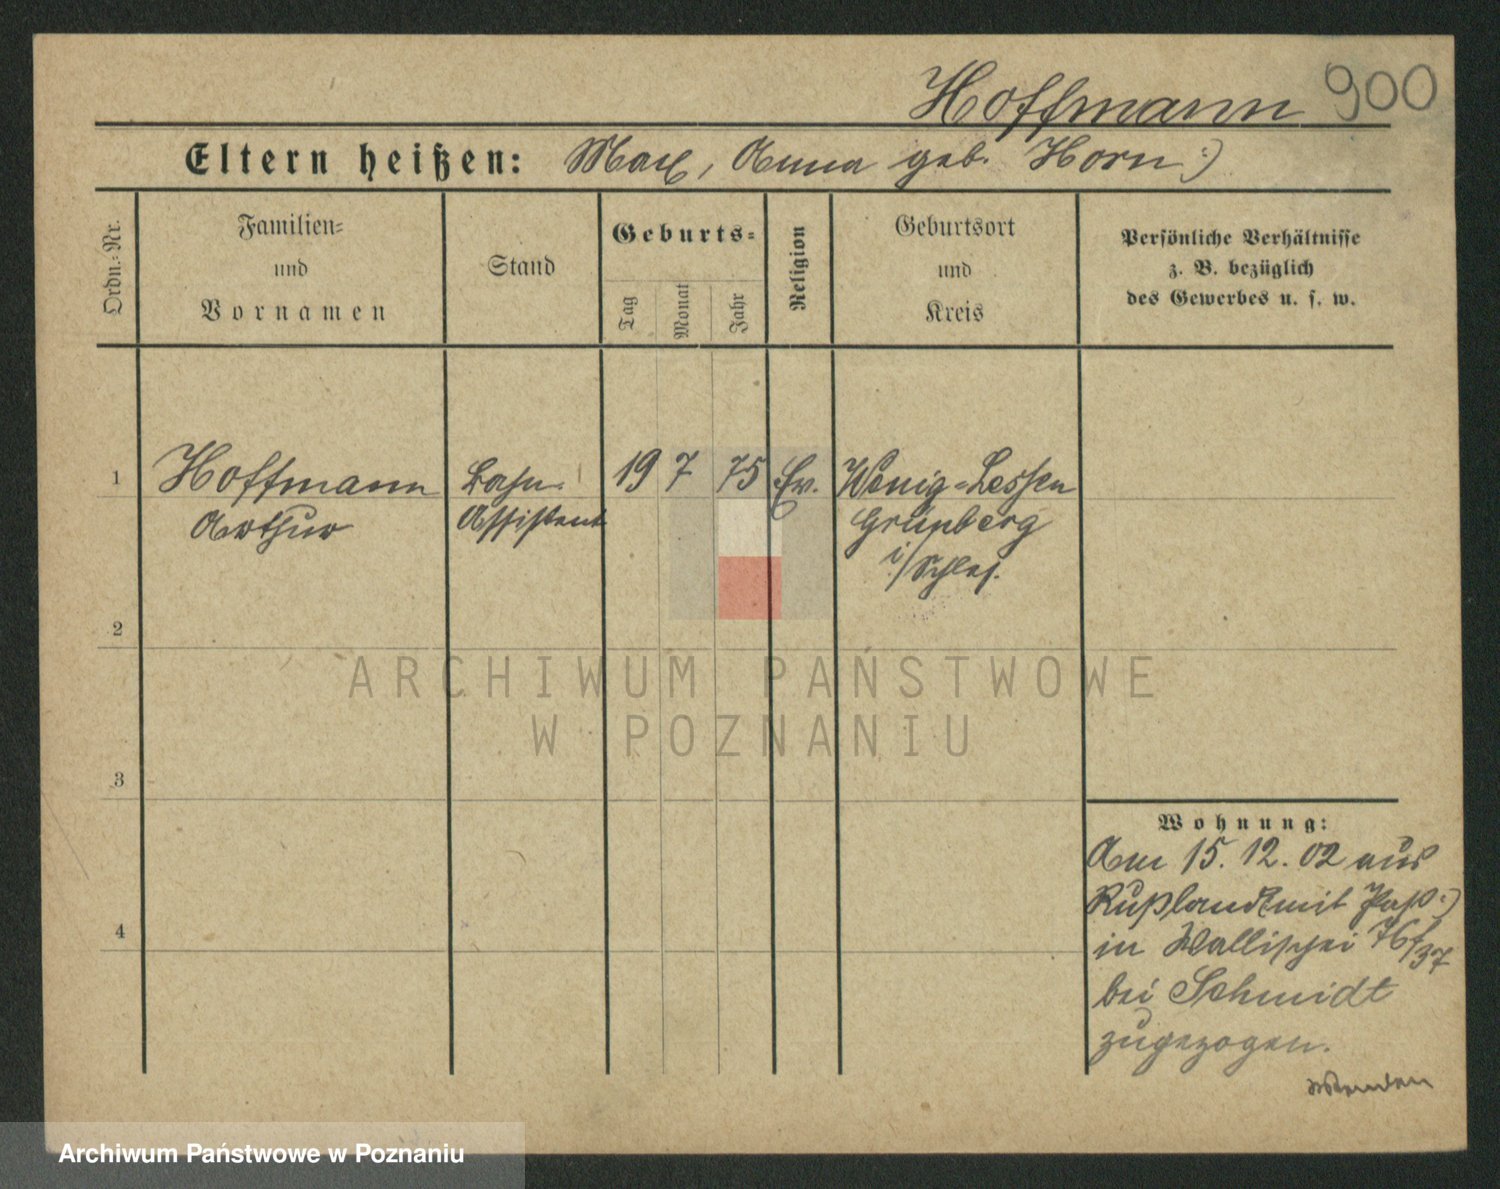 Hoffmann 900
Eltern heißen: Max, Anna geb. Horn :)
Ordn.-Nr.
Familien-
und
Vornamen
Stand
Geburts-
Tag
Monat
Jahr
Religion
Geburtsort
und
Kreis
Persönliche Verhältnisse
z. B. bezüglich
des Gewerbes u. s. w.
1 Hoffmann Bahn- 19 7 75 Ev. Wenig-Lessen
Arthur Assistent Grünberg
i/Schles.
2
ARCHIWUM PAŃSTWOWE
W POZNANIU
3
Wohnung:
Am 15. 12. 02 aus
Rußland mit Paß :)
in Wallischei 76/37
4
bei Schmidt
zugezogen.
Wenden
Archiwum Państwowe w Poznaniu